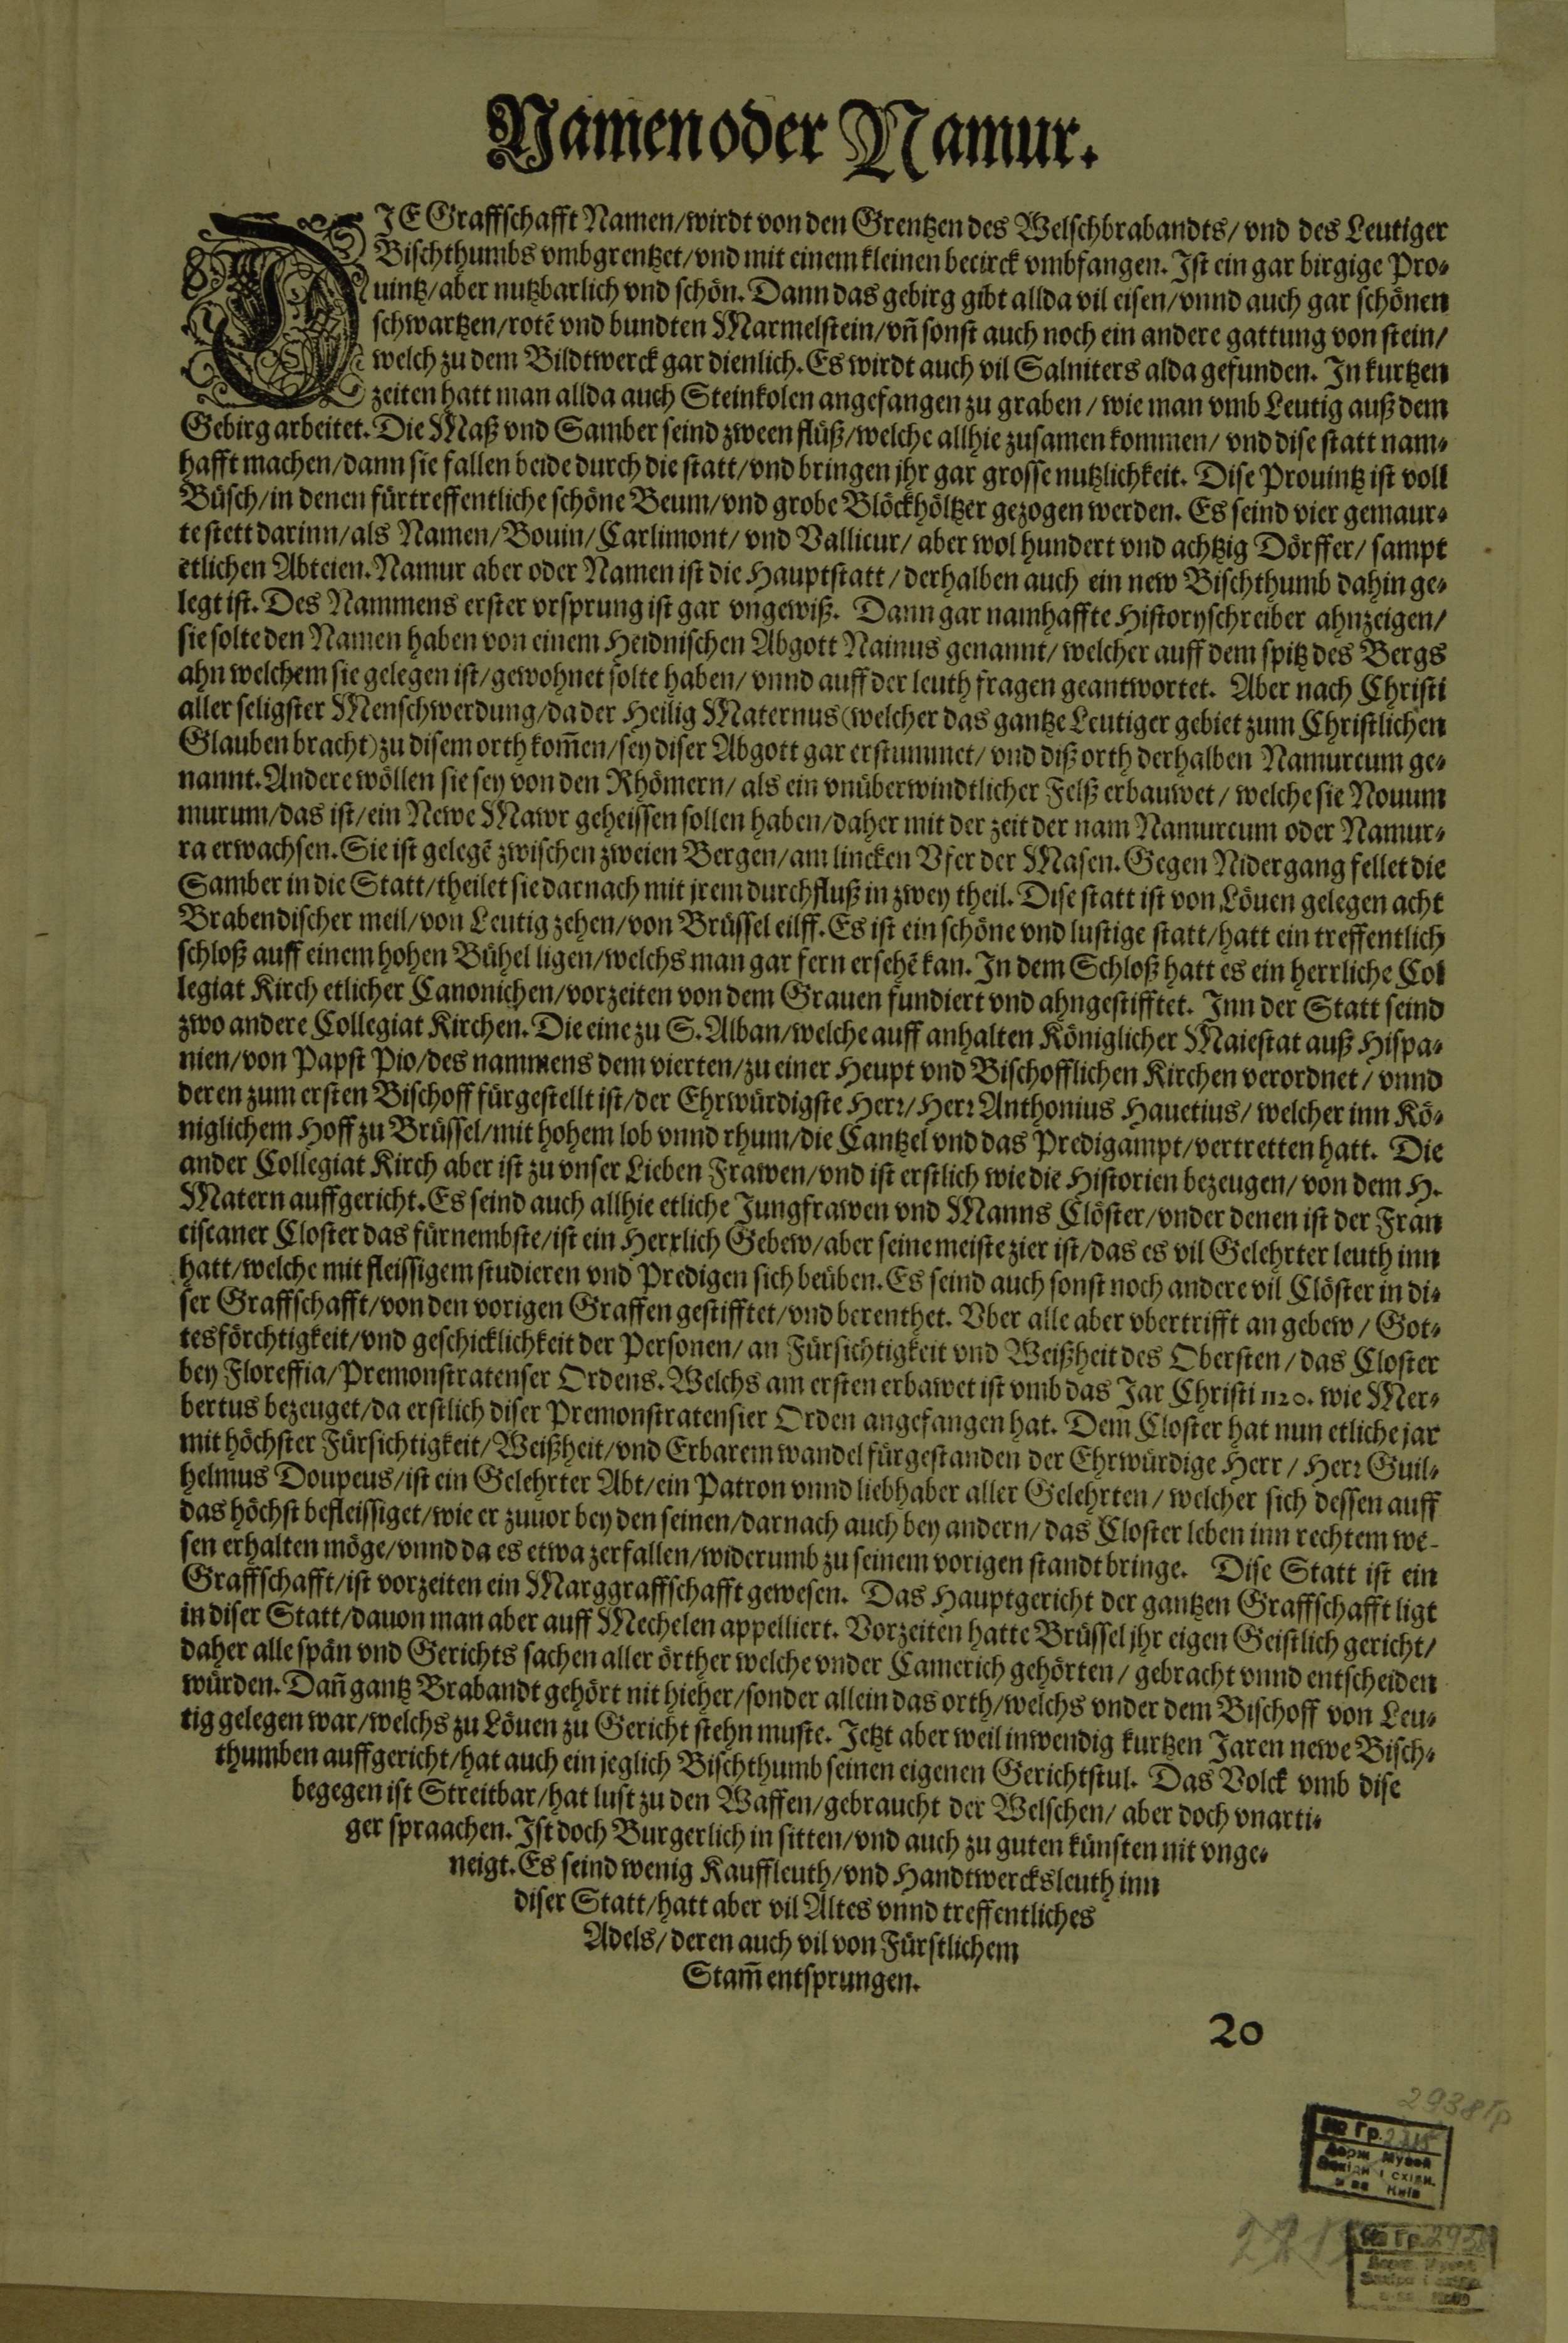 Namen oder Namur.
DIE Graffschafft Namen/wirdt von den Grentzen des Welschbrabandts/ vnd des Leutiger
Bischthumbs vmbgrentzet/vnd mit einem kleinen becirck vmbfangen. Jst ein gar birgige Pro⸗
uintz/aber nutzbarlich vnd schön. Dann das gebirg gibt allda vil eisen/vnnd auch gar schönen
schwartzen/rotē vnd bundten Marmelstein/vñ sonst auch noch ein andere gattung von stein/
welch zu dem Bildtwerck gar dienlich. Es wirdt auch vil Salniters alda gefunden. Jn kurtzen
zeiten hatt man allda auch Steinkolen angefangen zu graben / wie man vmb Leutig auß dem
Gebirg arbeitet. Die Maß vnd Samber seind zween flüß/welche allhie zusamen kommen/ vnd dise statt nam⸗
hafft machen/dann sie fallen beide durch die statt/vnd bringen jhr gar grosse nutzlichkeit. Dise Prouintz ist voll
Büsch/in denen fürtreffentliche schöne Beum/vnd grobe Blöckhöltzer gezogen werden. Es seind vier gemaur⸗
te stett darinn/als Namen/Bouin/Carlimont/ vnd Vallicur/ aber wol hundert vnd achtzig Dörffer/ sampt
etlichen Abteien. Namur aber oder Namen ist die Hauptstatt / derhalben auch ein new Bischthumb dahin ge⸗
legt ist. Des Nammens erster vrsprung ist gar vngewiß. Dann gar namhaffte Historyschreiber ahnzeigen/
sie solte den Namen haben von einem Heidnischen Abgott Nainus genannt/ welcher auff dem spitz des Bergs
ahn welchem sie gelegen ist/gewohnet solte haben/ vnnd auff der leuth fragen geantwortet. Aber nach Christi
aller seligster Menschwerdung/da der Heilig Maternus (welcher das gantze Leutiger gebiet zum Christlichen
Glauben bracht) zu disem orth kom̃en/sey diser Abgott gar erstummet/ vnd diß orth derhalben Namurcum ge⸗
nannt. Andere wöllen sie sey von den Rhömern/ als ein vnüberwindtlicher Felß erbauwet / welche sie Nouum
murum/das ist/ein Newe Mawr geheissen sollen haben/daher mit der zeit der nam Namurcum oder Namur⸗
ra erwachsen. Sie ist gelegē zwischen zweien Bergen/am lincken Vfer der Masen. Gegen Nidergang fellet die
Samber in die Statt/theilet sie darnach mit jrem durchfluß in zwey theil. Dise statt ist von Löuen gelegen acht
Brabendischer meil/von Leutig zehen/von Brüssel eilff. Es ist ein schöne vnd lustige statt/hatt ein treffentlich
schloß auff einem hohen Bühel ligen/welchs man gar fern ersehē kan. Jn dem Schloß hatt es ein herrliche Col
legiat Kirch etlicher Canonichen/vorzeiten von dem Grauen fundiert vnd ahngestifftet. Jnn der Statt seind
zwo andere Collegiat Kirchen. Die eine zu S. Alban/welche auff anhalten Königlicher Maiestat auß Hispa⸗
nien/von Papst Pio/des nammens dem vierten/zu einer Heupt vnd Bischofflichen Kirchen verordnet / vnnd
deren zum ersten Bischoff fürgestellt ist/der Ehrwürdigste Herr/ Herr Anthonius Hauetius/ welcher inn Kö⸗
niglichem Hoff zu Brüssel/mit hohem lob vnnd rhum/die Cantzel vnd das Predigampt/vertretten hatt. Die
ander Collegiat Kirch aber ist zu vnser Lieben Frawen/vnd ist erstlich wie die Historien bezeugen/ von dem H.
Matern auffgericht. Es seind auch allhie etliche Jungfrawen vnd Manns Clöster/vnder denen ist der Fran
ciscaner Closter das fürnembste/ist ein Herrlich Gebew/aber seine meiste zier ist/das es vil Gelehrter leuth inn
hatt/welche mit fleissigem studieren vnd Predigen sich beüben. Es seind auch sonst noch andere vil Clöster in di⸗
ser Graffschafft/von den vorigen Graffen gestifftet/vnd berenthet. Vber alle aber vbertrifft an gebew / Got⸗
tesförchtigkeit/vnd geschicklichkeit der Personen/ an Fürsichtigkeit vnd Weißheit des Obersten/ das Closter
bey Floreffia/Premonstratenser Ordens. Welchs am ersten erbawet ist vmb das Jar Christi 1120. wie Mer⸗
bertus bezeuget/da erstlich diser Premonstratensier Orden angefangen hat. Dem Closter hat nun etliche jar
mit höchster Fürsichtigkeit/Weißheit/vnd Erbarem wandel fürgestanden der Ehrwürdige Herr / Herr Guil⸗
helmus Doupeus/ist ein Gelehrter Abt/ein Patron vnnd liebhaber aller Gelehrten / welcher sich dessen auff
das höchst befleissiget/wie er zuuor bey den seinen/darnach auch bey andern/ das Closter leben inn rechtem we-
sen erhalten möge/vnnd da es etwa zerfallen/widerumb zu seinem vorigen standt bringe. Dise Statt ist ein
Graffschafft/ist vorzeiten ein Marggraffschafft gewesen. Das Hauptgericht der gantzen Graffschafft ligt
in diser Statt/dauon man aber auff Mechelen appelliert. Vorzeiten hatte Brüssel jhr eigen Geistlich gericht/
daher alle spän vnd Gerichts sachen aller örther welche vnder Camerich gehörten / gebracht vnnd entscheiden
würden. Dañ gantz Brabandt gehört nit hieher/sonder allein das orth/welchs vnder dem Bischoff von Leu⸗
tig gelegen war/welchs zu Löuen zu Gericht stehn muste. Jetzt aber weil inwendig kurtzen Jaren newe Bisch⸗
thumben auffgericht/hat auch ein jeglich Bischthumb seinen eigenen Gerichtstul. Das Volck vmb dise
begegen ist Streitbar/hat lust zu den Waffen/gebraucht der Welschen/ aber doch vnarti⸗
ger spraachen. Jst doch Burgerlich in sitten/vnd auch zu guten künsten nit vnge⸗
neigt. Es seind wenig Kauffleuth/vnd Handtwercksleuth inn
diser Statt/hatt aber vil Altes vnnd treffentliches
Adels/ deren auch vil von Fürstlichem
Stam̃ entsprungen.
20
2938 Гр
№ Гр.
Держ Музей
Західн і східн.
Київ
№ Гр. 2938